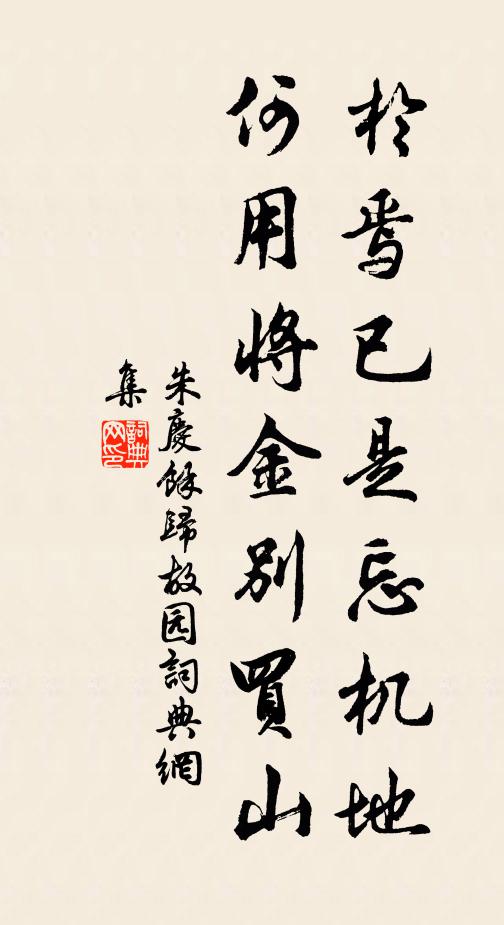 於焉已是忘机地
何用將金別買山
朱慶餘歸故园詞典網
集
詞典
网印